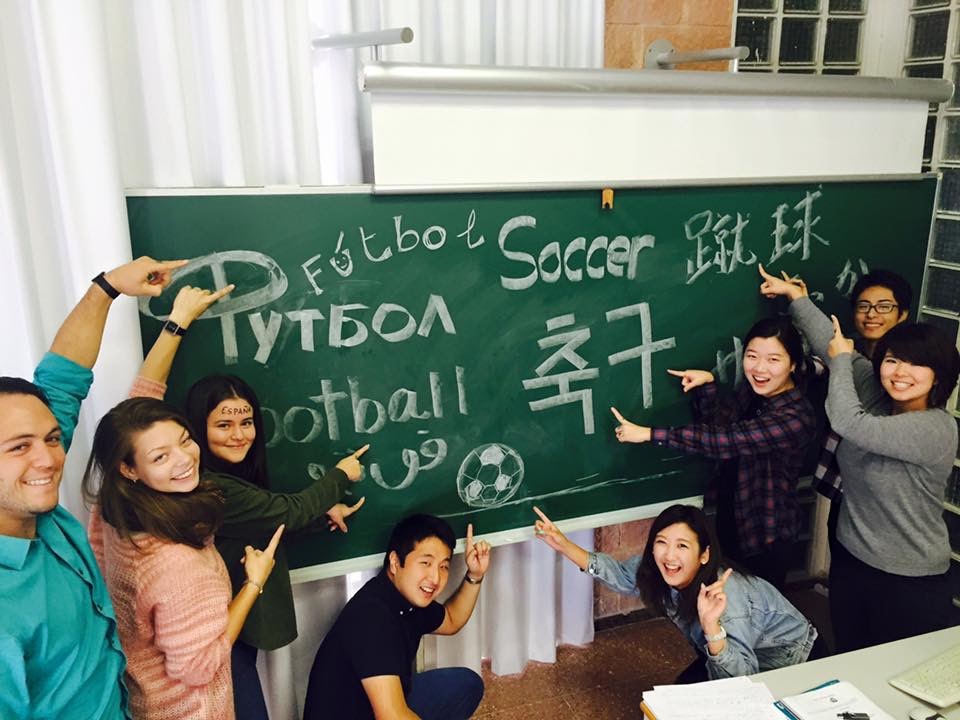 Fútbol Soccer 蹴球
Футбол
축구
ootball
ESPAÑA